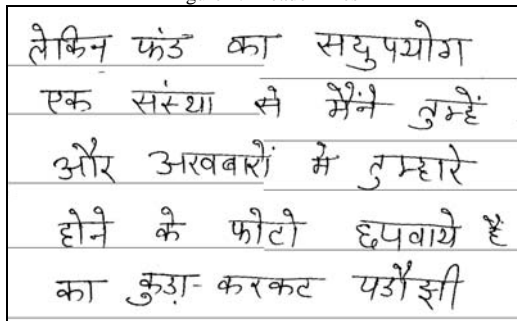 लेकिन फंड का सयुपयोग
एक संस्था से मैंने तुम्हें
और अखबारों मे तुम्हारे
होने के फोटो छपवाये हैं
का कुडा़-करकट पडौझी